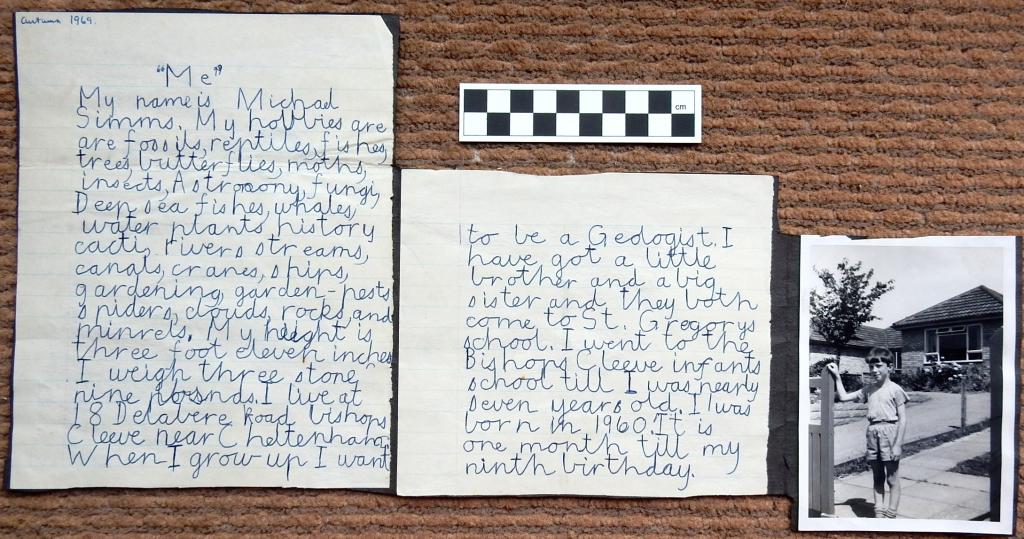 Autumn 1969.
"Me"
My name is Michael
Simms. My hobbies are
are fossils, reptiles, fishes,
trees, butterflies, moths,
insects, Astronony, fungi,
Deep sea fishes, whales,
water plants, history
cacti, rivers streams,
canals, cranes, ships,
gardening, garden-pests
spiders, clouds, rocks, and
minrels. My height is
three foot eleven inches
I weigh three stone
nine pounds. I live at
18 Delabere Road, bishops
Cleeve near Cheltenham.
When I grow up I want
to be a Geologist. I
have got a little
brother and a big
sister and they both
come to St. Gregorys
school. I went to the
Bishops Cleeve infants
school till I was nearly
seven years old. I was
born in 1960. It is
one month till my
ninth birthday.
cm